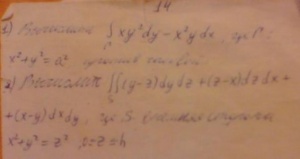 14
1) Вычислить ∫ xy²dy - x²y dx, где Г -
x² + y² = a²
2) Вычислить ∬(y-z)dydz + (z-x)dzdx +
+ (x-y)dxdy, где S -
x² + y² = z², 0≤z≤h